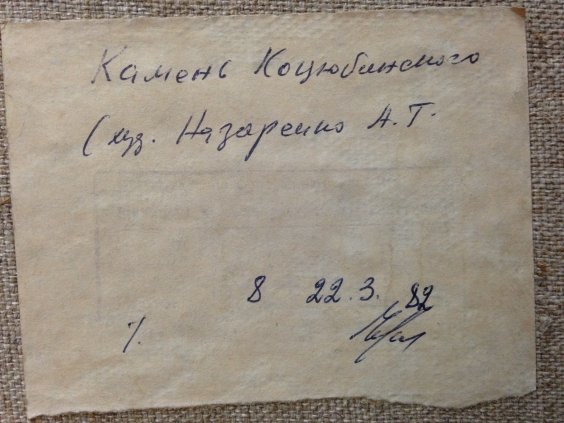 Камень Коцюбинского
(худ. Назаренко А.Т.
8 22.3. 82
٪.